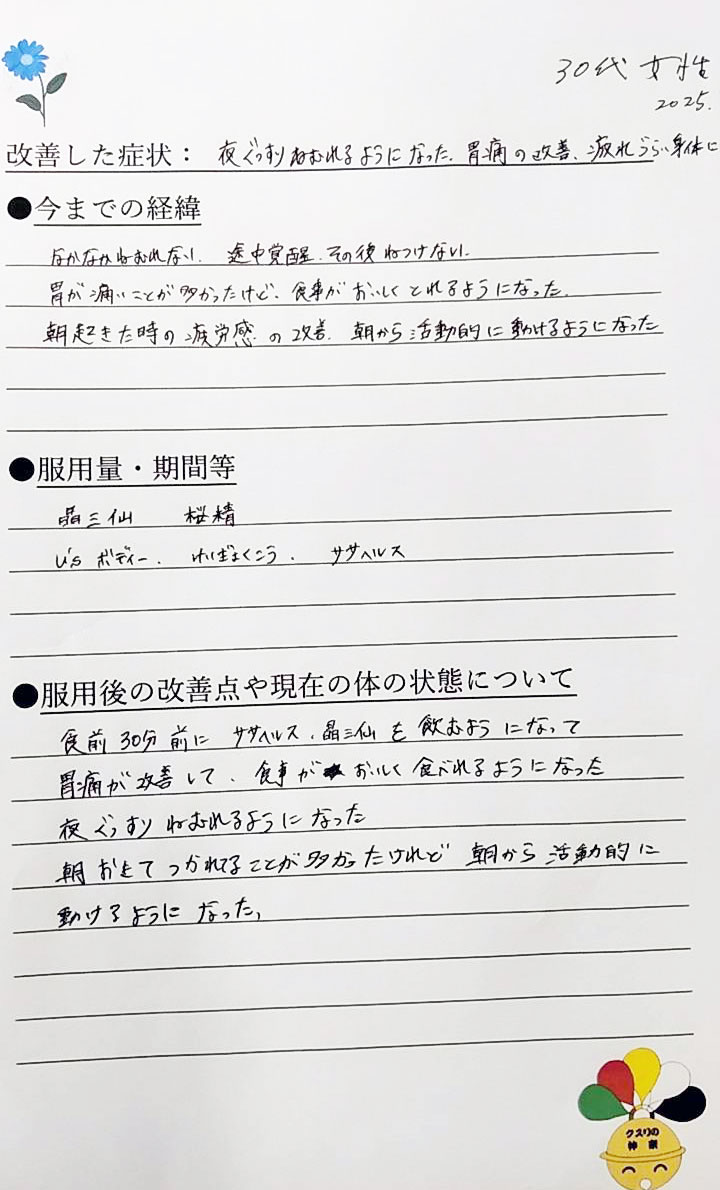 30代 女性
2025.
改善した症状： 夜ぐっすりねむれるようになった、胃痛の改善、疲れづらい身体に
●今までの経緯
なかなかねむれない、途中覚醒、その後ねつけない、
胃が痛いことが多かったけど、食事がおいしくとれるようになった、
朝起きた時の疲労感の改善、朝から活動的に動けるようになった
●服用量・期間等
晶三仙 桜精
U's ボディー、けいぎょくこう、ササヘルス
●服用後の改善点や現在の体の状態について
食前30分前に ササヘルス、晶三仙を飲むようになって
胃痛が改善して、食事が おいしく食べれるようになった
夜ぐっすりねむれるようになった
朝おきてつかれてることが多かったけれど 朝から活動的に
動けるようになった、
クスリの